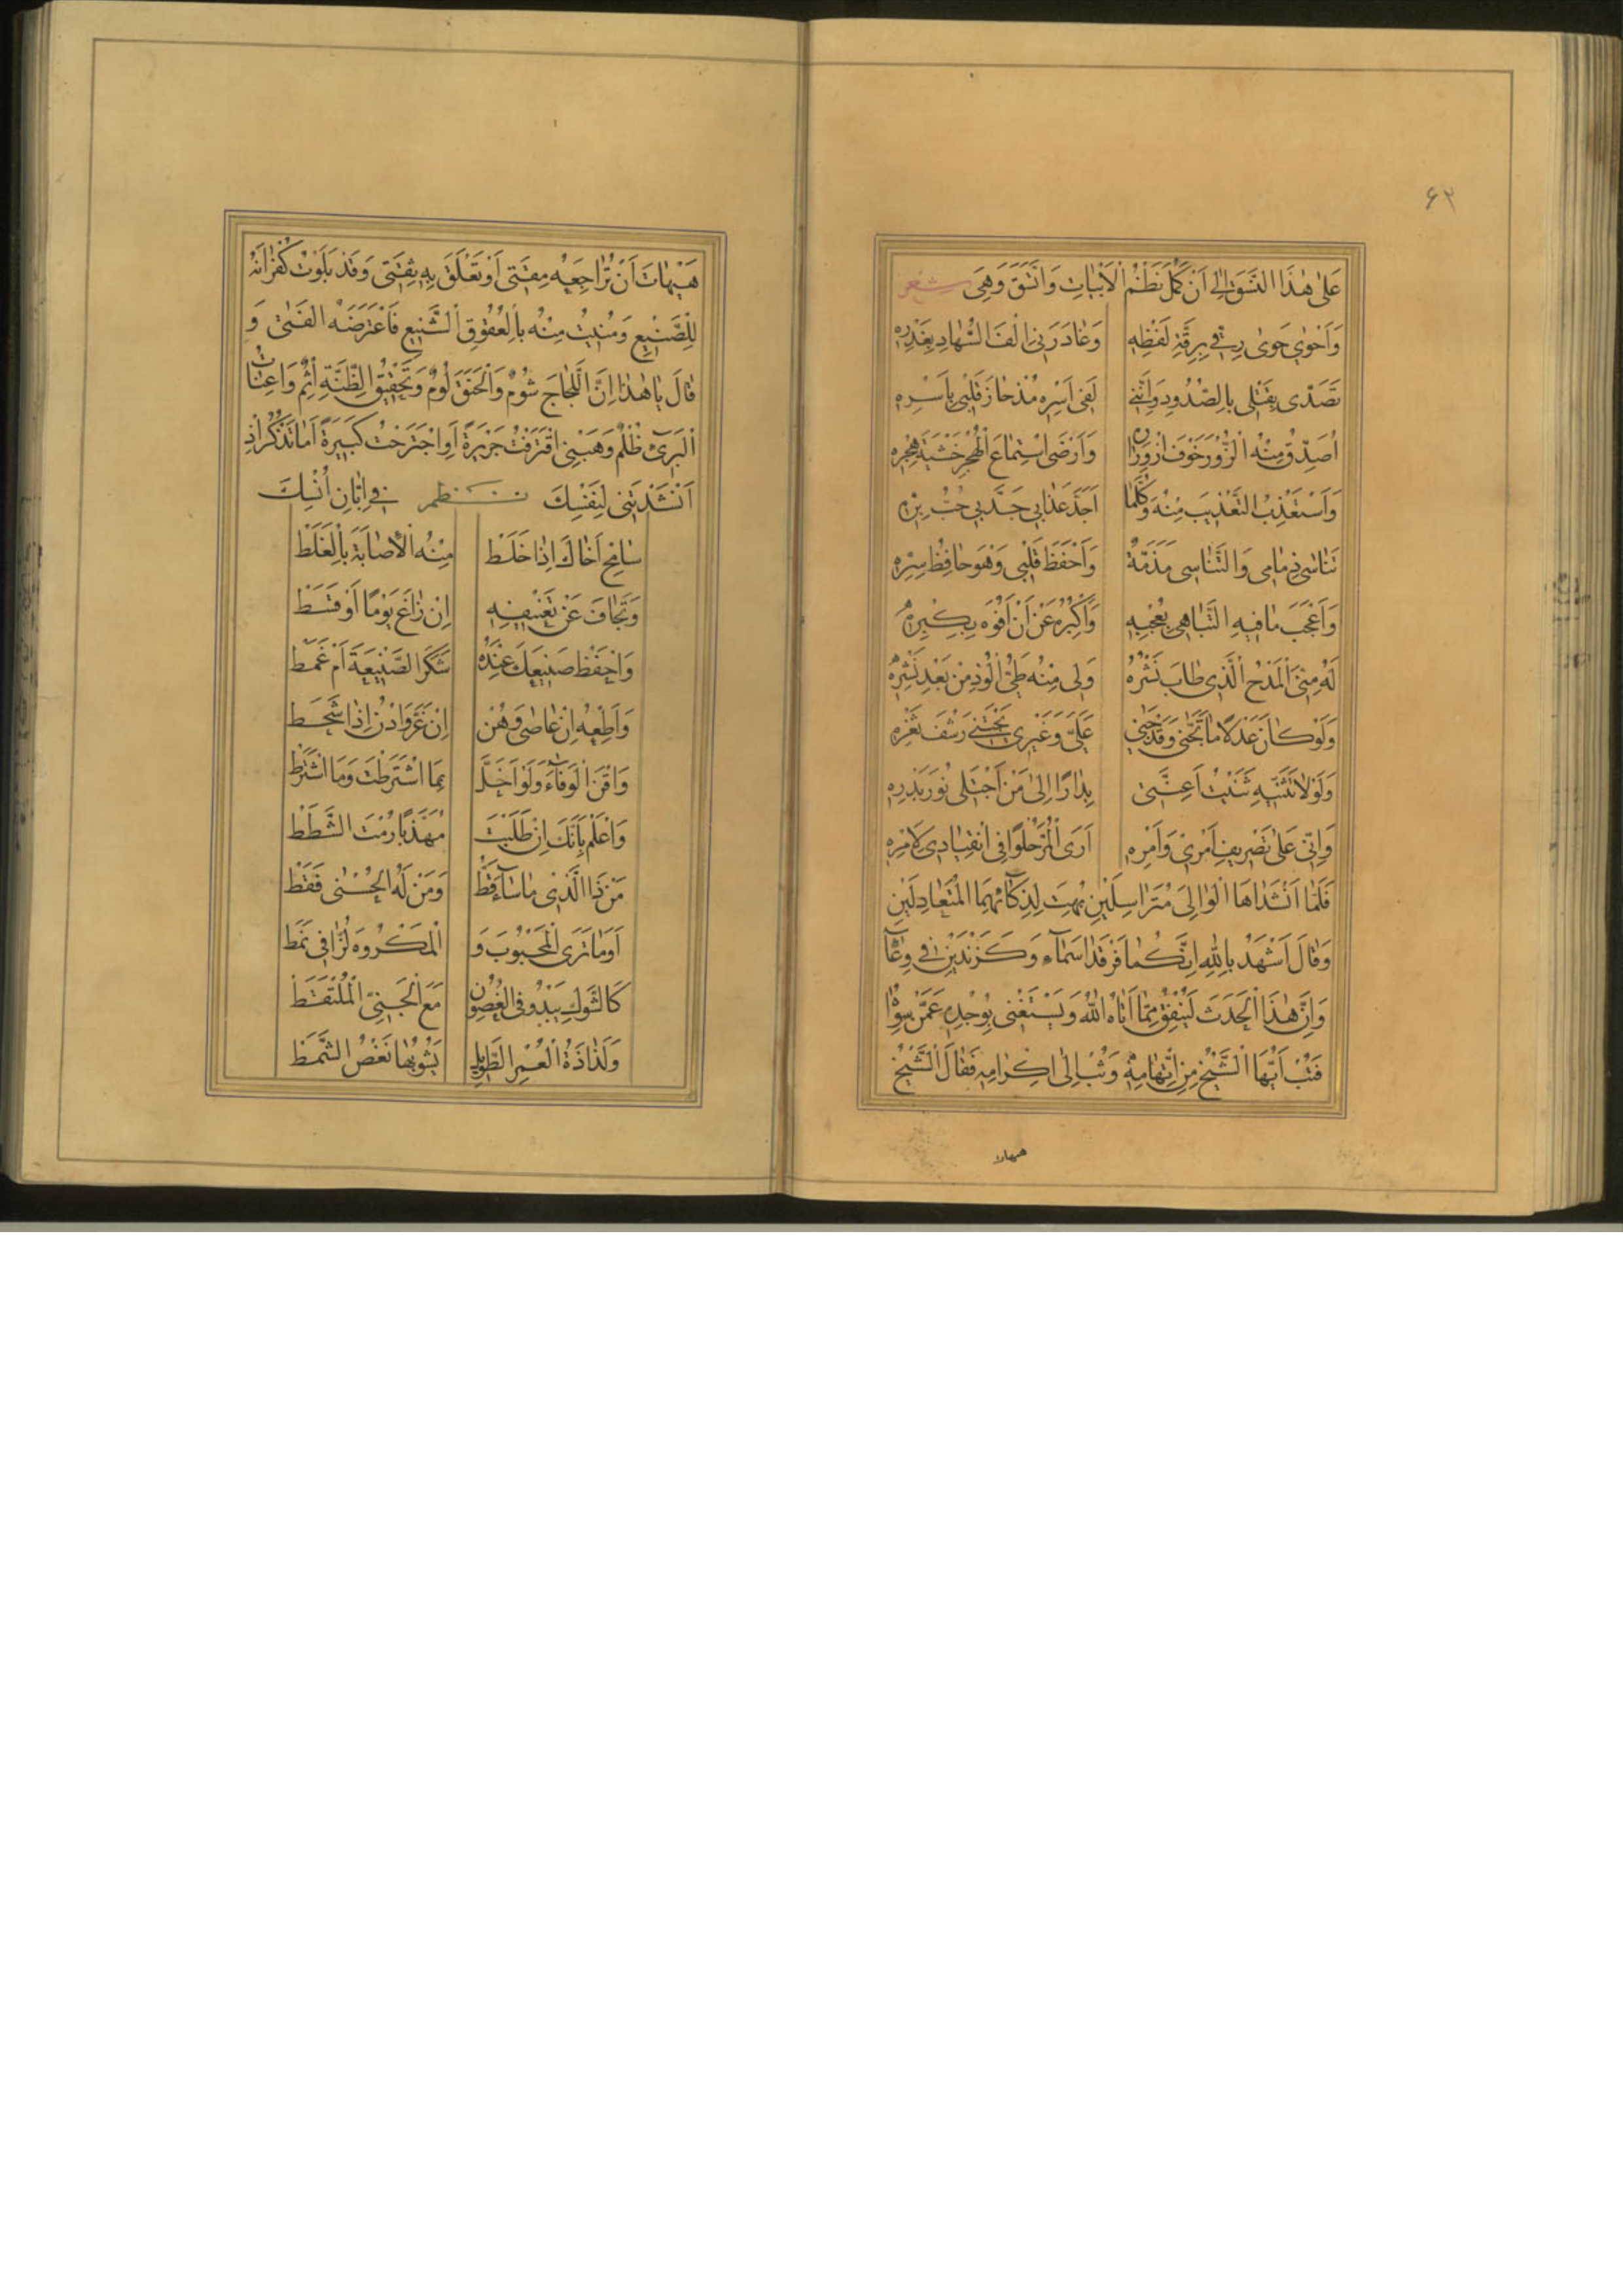 ۶۲
عَلىٰ هٰذَا النَّسَقِ اِلٰى اَنْ كَمُلَ نَظْمُ الْاَبْيَاتِ وَاتَّسَقَ وَهِىَ شعر
وَاَحْوٰى حَوىٰ رِقّٖى بِرِقَّةِ لَفْظِهِ وَغَادَرَنِى اِلْفَ السُّهَادِ بِغَدْرِهِ
تَصَدّٰى بِقَتْلِى بِالصُّدُودِ وَاِنَّنِى لَفِى اَسْرِهِ مُذْ حَازَ قَلْبِى بِاَسْرِهِ
اُصَدِّقُ مِنْهُ الْزُّورَ خَوْفَ ازْوِرَارِهِ وَاَرْضَى اسْتِمَاعَ الْهُجْرِ خَشْيَةَ هَجْرِهِ
وَاَسْتَعْذِبُ التَّعْذِيبَ مِنْهُ وَكُلَّمَا اَجَدَّ عَذَابِى جَدَّ بِى حُبُّ بِرِّهِ
تَنَاسٰى ذِمَامِى وَالتَّنَاسِى مَذَمَّةٌ وَاَحْفَظَ قَلْبِى وَهْوَ حَافِظُ سِرِّهِ
وَاَعْجَبَ مَا فِيهِ التَّبَاهِى بِعُجْبِهِ وَاُكْبِرُهُ عَنْ اَنْ اَفُوهَ بِكِبْرِهِ
لَهُ مِنِّىَ الْمَدْحُ الَّذِى طَابَ نَشْرُهُ وَلِى مِنْهُ طَىُّ الْوُدِّ مِنْ بَعْدِ نَشْرِهِ
وَلَوْ كَانَ عَدْلًا مَا تَجَنّٰى وَقَدْ جَنٰى عَلَىَّ وَغَيْرِى يَجْتَنِى رَشْفَ ثَغْرِهِ
وَلَوْلَا تَثَنّٖيهِ ثَنَيْتُ اَعِنَّتِى بِدَارًا اِلىٰ مَنْ اَجْتَلِى نُورَ بَدْرِهِ
وَاِنِّى عَلىٰ تَصْرِيفِ اَمْرِى وَاَمْرِهِ اَرَى الْمُرَّ حُلْوًا فِى انْقِيَادِى لِاَمْرِهِ
فَلَمَّا اَنْشَدَاهَا الْوَالِىَ مُتَرَاسِلَيْنِ بُهِتَ لِذَكَائِهِمَا الْمُتَعَادِلَيْنِ
وَقَالَ اَشْهَدُ بِاللّٰهِ اِنَّكُمَا فَرْقَدَا سَمَآءٍ وَكَزَنْدَيْنِ فِى وِعَآءٍ
وَاِنَّ هٰذَا الْحَدَثَ لَيُنْفِقُ مِمَّا اٰتَاهُ اللّٰهُ وَيَسْتَغْنِى بِوُجْدِهِ عَمَّنْ سِوَاهُ
فَتُبْ اَيُّهَا الْشَّيْخُ مِنِ اتِّهَامِهِ وَثُبْ اِلٰى اِكْرَامِهِ فَقَالَ الْشَّيْخُ
هيهات
هَيْهَاتَ اَنْ تُرَاجِعَهُ مِقَتِى اَوْ تَعْلَقَ بِهِ ثِقَتِى وَقَدْ بَلَوْتُ كُفْرَانَهُ
لِلْصَّنِيعِ وَمُنِيتُ مِنْهُ بِالْعُقُوقِ الْشَّنِيعِ فَاعْتَرَضَهُ الْفَتٰى وَ
قَالَ يَا هٰذَا اِنَّ الْلَّجَاجَ شُومٌ وَالْحَنَقَ لُومٌ وَتَحْقِيقَ الْظِّنَّةِ اِثْمٌ وَاِعْنَاتَ
الْبَرِئِ ظُلْمٌ وَهَبْنِى اقْتَرَفْتُ جَرِيرَةً اَوِ اجْتَرَحْتُ كَبِيرَةً اَمَا تَذْكُرُ اِذْ
اَنْشَدْتَنِى لِنَفْسِكَ نظم فِى اِبَّانِ اُنْسِكَ
سَامِحْ اَخَاكَ اِذَا خَلَطْ مِنْهُ الْاِصَابَةَ بِالْغَلَطْ
وَتَجَافَ عَنْ تَعْنِيفِهِ اِنْ زَاغَ يَوْمًا اَوْ قَسَطْ
وَاحْفَظْ صَنِيعَكَ عِنْدَهُ شَكَرَ الصَّنِيعَةَ اَمْ غَمَطْ
وَاَطِعْهُ اِنْ عَاصٰى وَهُنْ اِنْ عَزَّ وَادْنُ اِذَا شَحَطْ
وَاقْنَ الْوَفَآءَ وَلَوْ اَخَلَّ بِمَا اشْتَرَطْتَ وَمَا اشْتَرَطْ
وَاعْلَمْ بِاَنَّكَ اِنْ طَلَبْتَ مُهَذَّبًا رُمْتَ الشَّطَطْ
مَنْ ذَا الَّذِى مَا سَآءَ قَطُّ وَمَنْ لَهُ الْحُسْنٰى فَقَطْ
اَوَمَا تَرَى الْمَحْبُوبَ وَ الْمَكْرُوهَ لُزَّا فِى نَمَطْ
كَالشَّوْكِ يَبْدُو فِى الْغُصُونِ مَعَ الْجَنِىِّ الْمُلْتَقَطْ
وَلَذَاذَةُ الْعُمْرِ الطَّوِيلِ يَشُوبُهَا نَغَصُ الشَّمَطْ